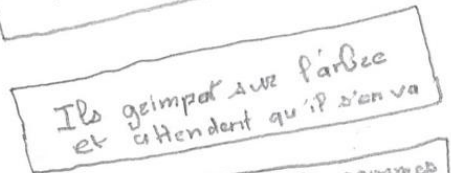 Ils grimpat sur l'arbre
et attendent qu'il s'en va